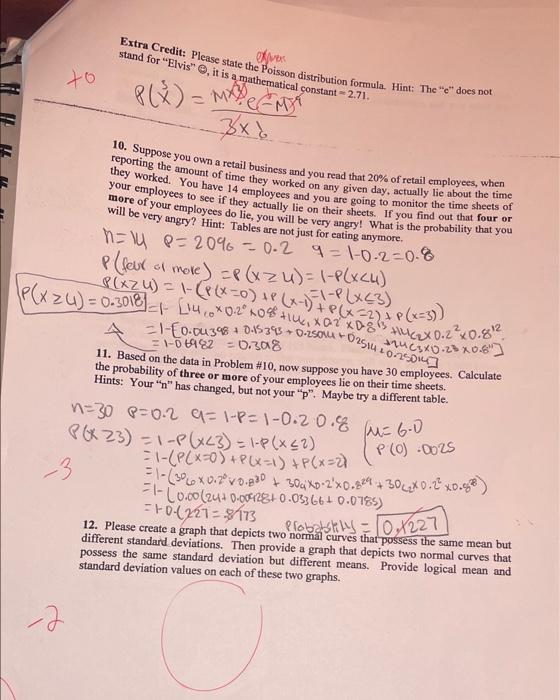 Extra Credit: Please state the Poisson distribution formula. Hint: The "e" does not
stand for "Elvis" ☺, it is a mathematical constant = 2.71.
+0
10. Suppose you own a retail business and you read that 20% of retail employees, when
reporting the amount of time they worked on any given day, actually lie about the time
they worked. You have 14 employees and you are going to monitor the time sheets of
your employees to see if they actually lie on their sheets. If you find out that four or
more of your employees do lie, you will be very angry! What is the probability that you
will be very angry? Hint: Tables are not just for eating anymore.
n=14 P=20% = 0.2 q=1-0.2=0.8
P(four or more) = P(x≥4) = 1-P(x<4)
=1-P(x≤3)
P(x≥4) = 1-(P(x=0)+P(x=1)+P(x=2)+P(x=3))
P(x≥4)=0.3018
=1-0.6982 = 0.3018
11. Based on the data in Problem #10, now suppose you have 30 employees. Calculate
the probability of three or more of your employees lie on their time sheets.
Hints: Your "n" has changed, but not your "p". Maybe try a different table.
n=30 P=0.2 q=1-P=1-0.2 0.8
M=6.0
P(x≥3) = 1-P(x<3) = 1-P(x≤2)
P(0) .0025
=1-(P(x=0)+P(x=1)+P(x=2)
-3
Probability = 0.1227
12. Please create a graph that depicts two normal curves that possess the same mean but
different standard deviations. Then provide a graph that depicts two normal curves that
possess the same standard deviation but different means. Provide logical mean and
standard deviation values on each of these two graphs.
-2